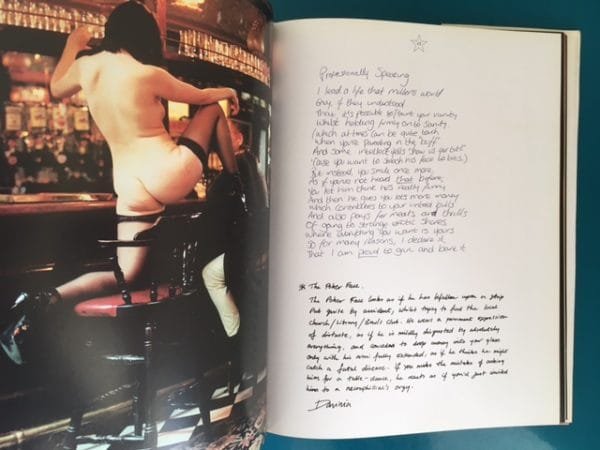 Professionally Speaking
I lead a life that millions would
Envy, if they understood
That it's possible to flaunt your vanity
Whilst holding firmly onto sanity.
(Which at times can be quite tough
When you're standing in the buff
And some intellect yells 'show us yer bits'
'Cause you want to smash his face to bits.)
But instead, you smile once more
As if you've not heard that before,
You let him think he's really funny
And then he gives you lots more money
Which contributes to your untold bills
And also pays for meals and thrills
Of going to strange exotic shores
Where everything you want is yours
So for many reasons, I declare it,
That I am proud to grin and bare it
* The Poker Face.
The Poker Face looks as if he has befallen upon a strip
Pub quite by accident, whilst trying to find the local
church/library/bowls club. He wears a permanent expression
of distaste, as if he is mildly disgusted by absolutely
everything, and condescends to drop money into your glass
only with his arm fully extended, as if he thinks he might
catch a fatal disease. If you make the mistake of asking
him for a table-dance, he reacts as if you'd just invited
him to a necrophiliac's orgy.
Davinia